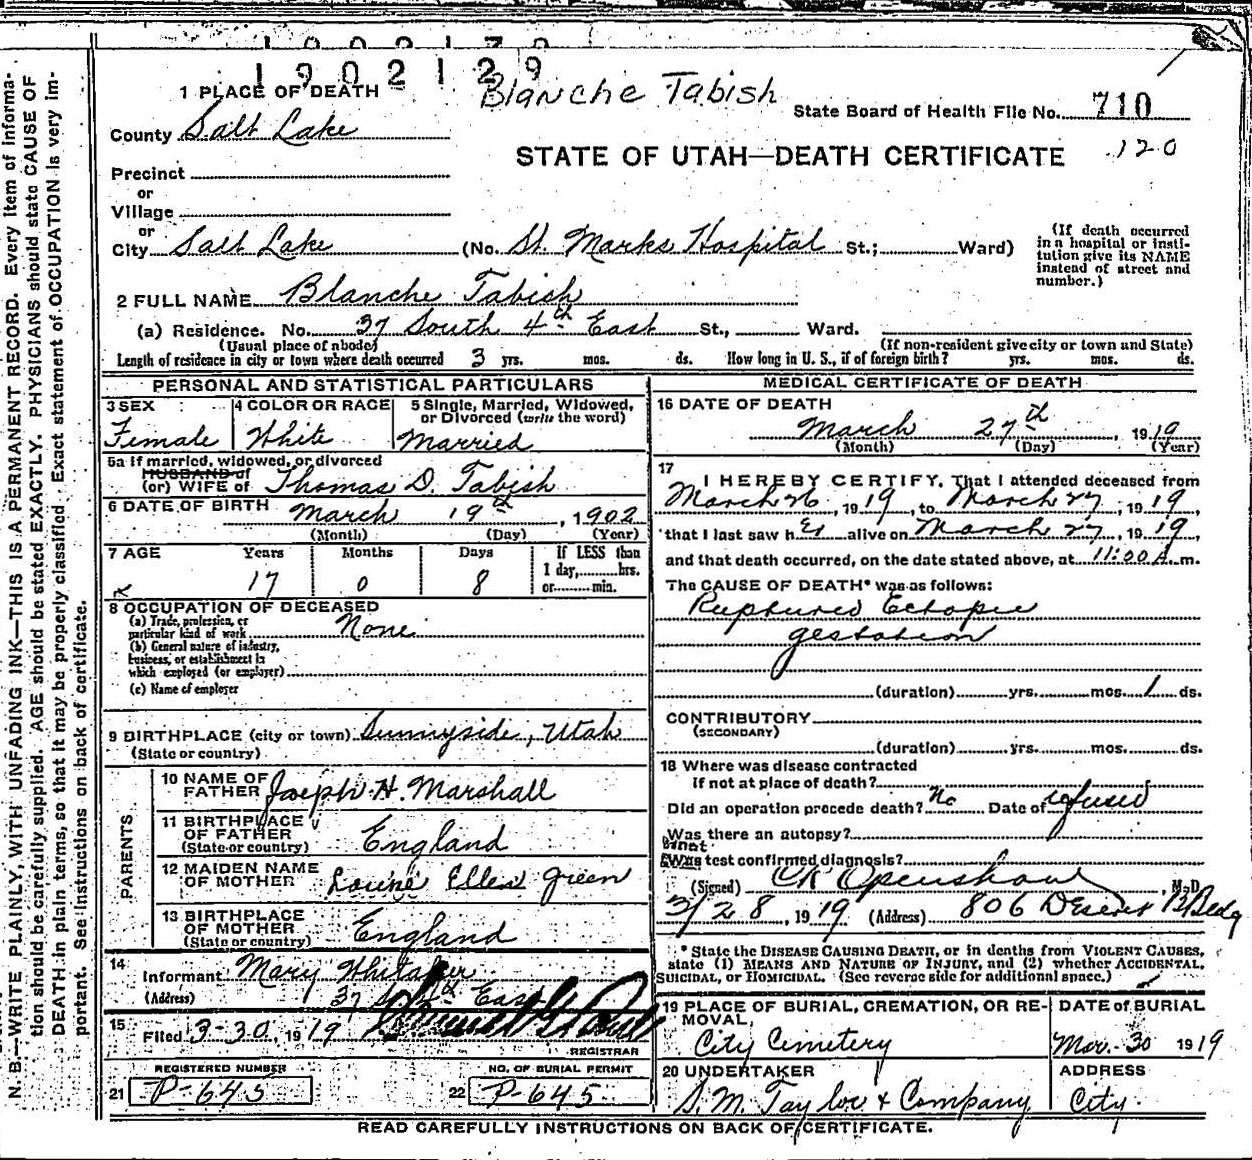 1902129
Blanche Tabish
1 PLACE OF DEATH
State Board of Health File No. 710
County Salt Lake
STATE OF UTAH—DEATH CERTIFICATE 120
Precinct
or
Village
or
City Salt Lake (No. St. Marks Hospital St.; Ward)
(If death occurred in a hospital or insti-
tution give its NAME
instead of street and
number.)
2 FULL NAME Blanche Tabish
(a) Residence. No. 37 South 4th East St., Ward.
(Usual place of abode) (If non-resident give city or town and State)
Length of residence in city or town where death occurred 3 yrs. mos. ds. How long in U. S., if of foreign birth? yrs. mos. ds.
PERSONAL AND STATISTICAL PARTICULARS
3 SEX 4 COLOR OR RACE 5 Single, Married, Widowed,
or Divorced (write the word)
Female White Married
5a If married, widowed, or divorced
HUSBAND of
(or) WIFE of Thomas D. Tabish
6 DATE OF BIRTH March 19th, 1902
(Month) (Day) (Year)
7 AGE Years Months Days If LESS than
1 day, hrs.
or min.
17 0 8
8 OCCUPATION OF DECEASED
(a) Trade, profession, or
particular kind of work None
(b) General nature of industry,
business, or establishment in
which employed (or employer)
(c) Name of employer
9 BIRTHPLACE (city or town) Sunnyside, Utah
(State or country)
PARENTS
10 NAME OF
FATHER Joseph H. Marshall
11 BIRTHPLACE
OF FATHER
(State or country) England
12 MAIDEN NAME
OF MOTHER Louine Ellen Green
13 BIRTHPLACE
OF MOTHER
(State or country) England
14
Informant Mary Whitaker
(Address) 37 S 4th East
15
Filed 3-30, 1919
REGISTRAR
REGISTERED NUMBER NO. OF BURIAL PERMIT
21 P-645 22 P-645
MEDICAL CERTIFICATE OF DEATH
16 DATE OF DEATH
March 27th, 1919
(Month) (Day) (Year)
17
I HEREBY CERTIFY, That I attended deceased from
March 26, 1919, to March 27, 1919
that I last saw her alive on March 27, 1919
and that death occurred, on the date stated above, at 11:00 A. m.
The CAUSE OF DEATH* was as follows:
Ruptured Ectopic
gestation
(duration) yrs. mos. 1 ds.
CONTRIBUTORY
(SECONDARY)
(duration) yrs. mos. ds.
18 Where was disease contracted
If not at place of death?
Did an operation precede death? No Date of refused
Was there an autopsy?
What
Was test confirmed diagnosis?
(Signed) CK Openshaw, M-D
3/28, 1919 (Address) 806 Deseret B Bldg
*State the DISEASE CAUSING DEATH, or in deaths from VIOLENT CAUSES,
state (1) MEANS AND NATURE OF INJURY, and (2) whether ACCIDENTAL,
SUICIDAL, or HOMICIDAL. (See reverse side for additional space.)
19 PLACE OF BURIAL, CREMATION, OR RE-
MOVAL, DATE of BURIAL
City Cemetery Mar. 30 1919
20 UNDERTAKER ADDRESS
S. M. Taylor & Company City
READ CAREFULLY INSTRUCTIONS ON BACK OF CERTIFICATE.
N. B.—WRITE PLAINLY, WITH UNFADING INK—THIS IS A PERMANENT RECORD. Every item of informa-
tion should be carefully supplied. AGE should be stated EXACTLY. PHYSICIANS should state CAUSE OF
DEATH in plain terms, so that it may be properly classified. Exact statement of OCCUPATION is very im-
portant. See instructions on back of certificate.